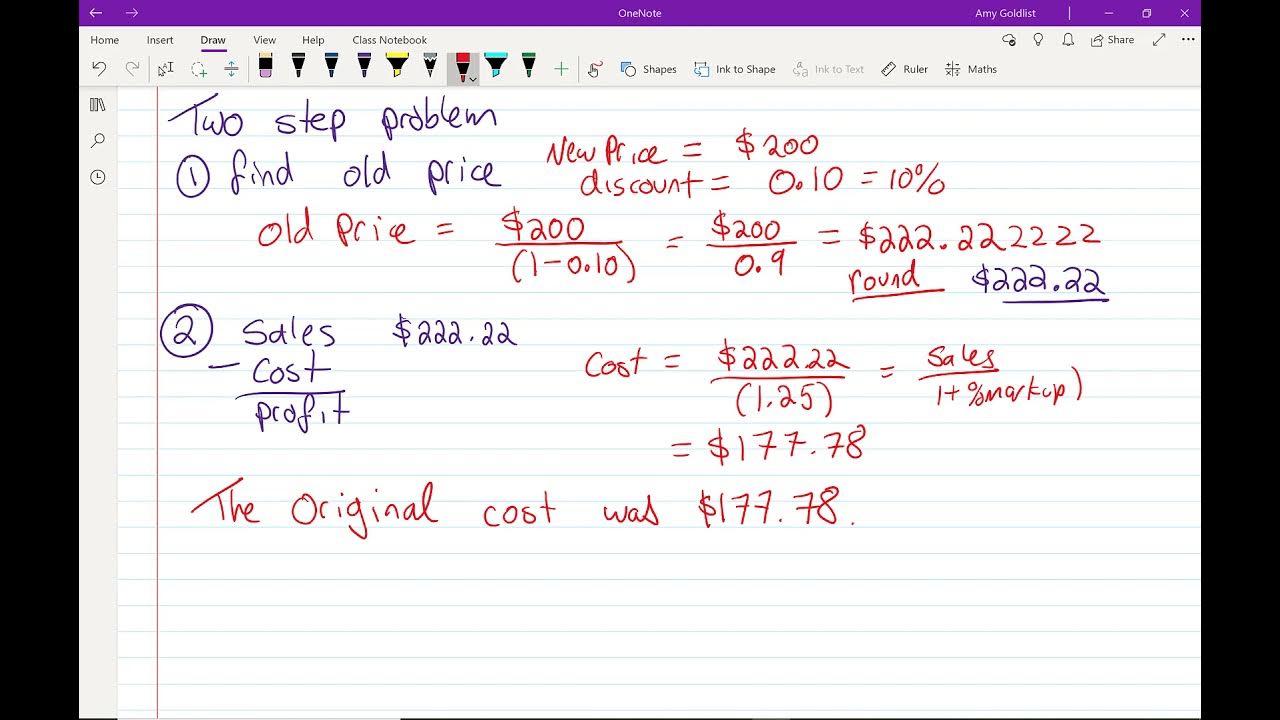 OneNote
Amy Goldlist
Home Insert Draw View Help Class Notebook
Share
Shapes Ink to Shape Ink to Text Ruler Maths
Two step problem
① find old price
New Price = $200
discount = 0.10 = 10%
old Price = $200 / (1-0.10) = $200 / 0.9 = $222.222222
round $222.22
② Sales $222.22
- Cost
profit
Cost = $222.22 / (1.25) = Sales / 1+%markup)
= $177.78
The Original cost was $177.78.